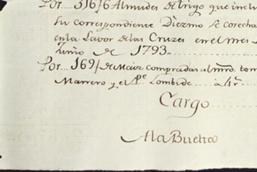 Por.. 516/6 Almudes de trigo que incl
su correspondiente Diezmo se cosecha
en la Lavor de las Cruzes en el mes
Junio de 1793
Por.. 169/ de Maiz compradas al
Marrero y el Pe. Lombide a
Cargo
A la Buelta